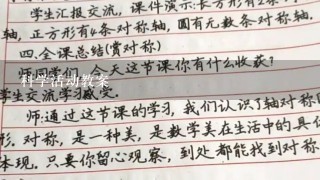 学生汇报交流，课件演示：长方形有2条
轴，正方形有4条对称轴，圆有无数条对称轴.
四.全课总结(赏对称)
师:同学们，今天这节课你有什么收获？
科学活动教案
学生交流学习感受.
师:通过这节课的学习，我们认识了轴对称图
形.对称，是一种美，是数学美在生活中的具体
体现.只要你留心观察，到处都能找到对称